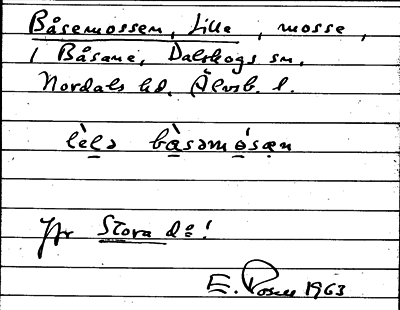 Båsemossen, Lilla, mosse,
i Båsane, Dalskogs sn,
Nordals hd. Älvsb. l.
lèlə bàsəmósæn
Jfr Stora do!
E. 1963